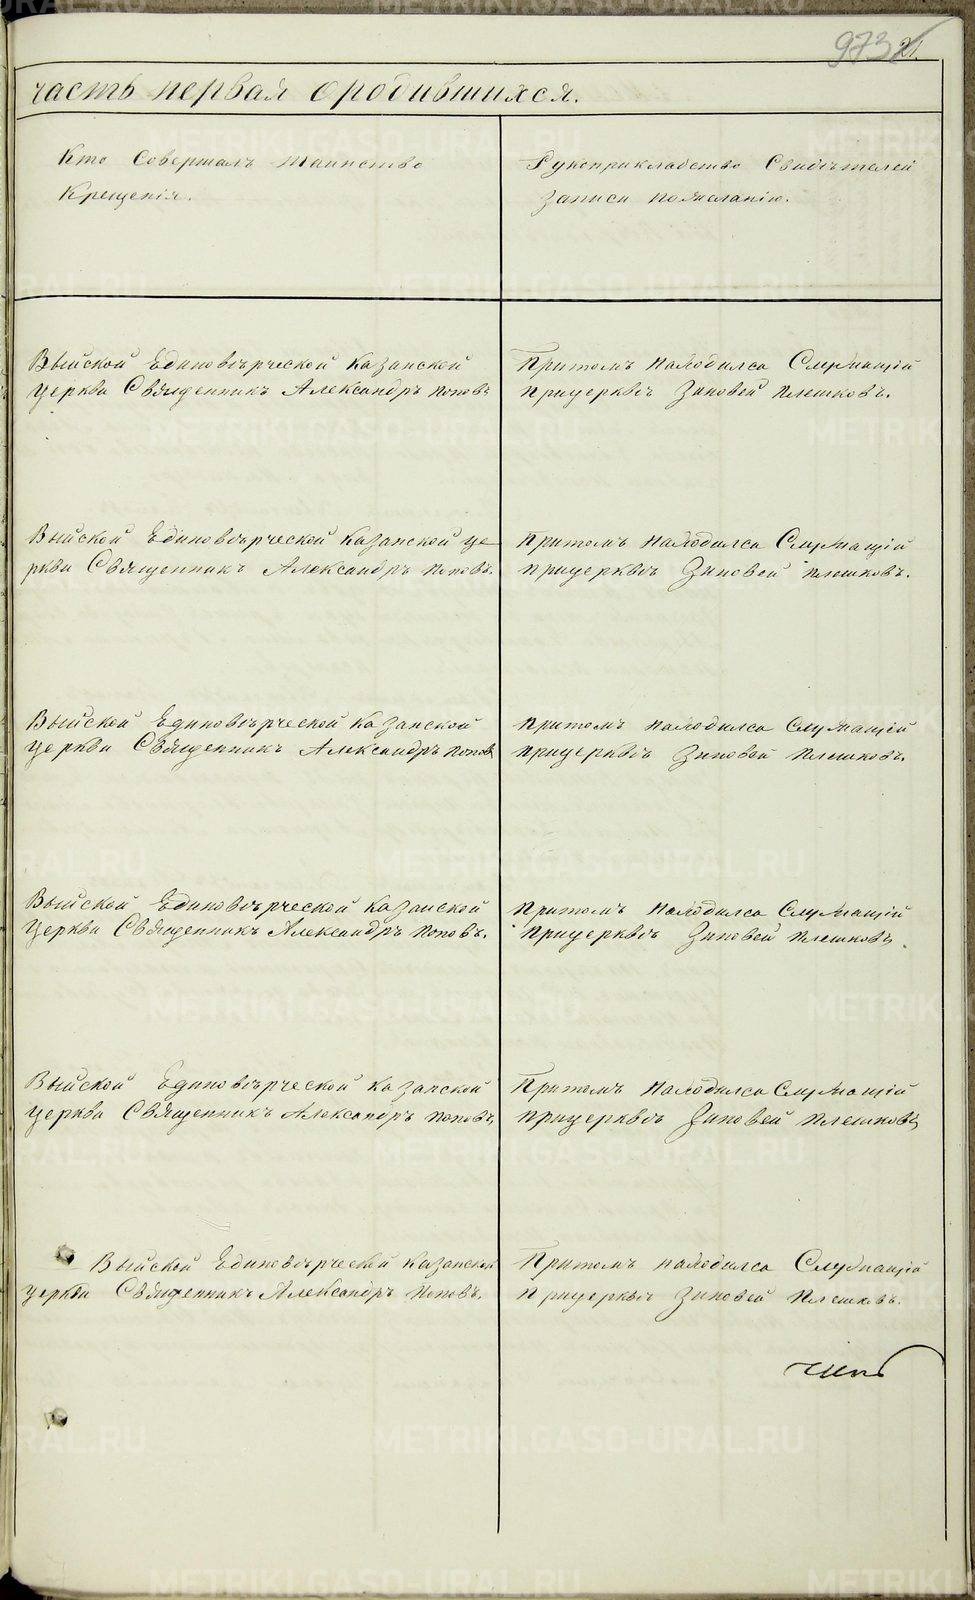 973
21
часть первая о родившихся.
Кто Совершалъ таинство
Крещенія.
Рукоприкладство Свидѣтелей
записи по желанію.
Выйской Единовѣрческой Казанской
церкви Священникъ Александръ Поповъ
При томъ находился Служащій
при церквѣ Зиновей Плешковъ.
Выйской Единовѣрческой Казанской це
ркви Священникъ Александръ Поповъ.
При томъ находился Служащій
при церквѣ Зиновей Плешковъ.
Выйской Единовѣрческой Казанской
церкви Священникъ Александръ Попов
При томъ находился Служащій
при церквѣ Зиновей Плешковъ.
Выйской Единовѣрческой Казанской
церкви Священникъ Александръ Поповъ.
При томъ находился Служащій
при церквѣ Зиновей Плешковъ.
Выйской Единовѣрческой Казанской
церкви Священникъ Александръ Поповъ
При томъ находился Служащій
при церквѣ Зиновей Плешковъ
Выйской Единовѣрческой Казанской
церкви Священникъ Александръ Поповъ.
При томъ находился Служащій
при церквѣ Зиновей Плешковъ.
METRIKI.GASO-URAL.RU